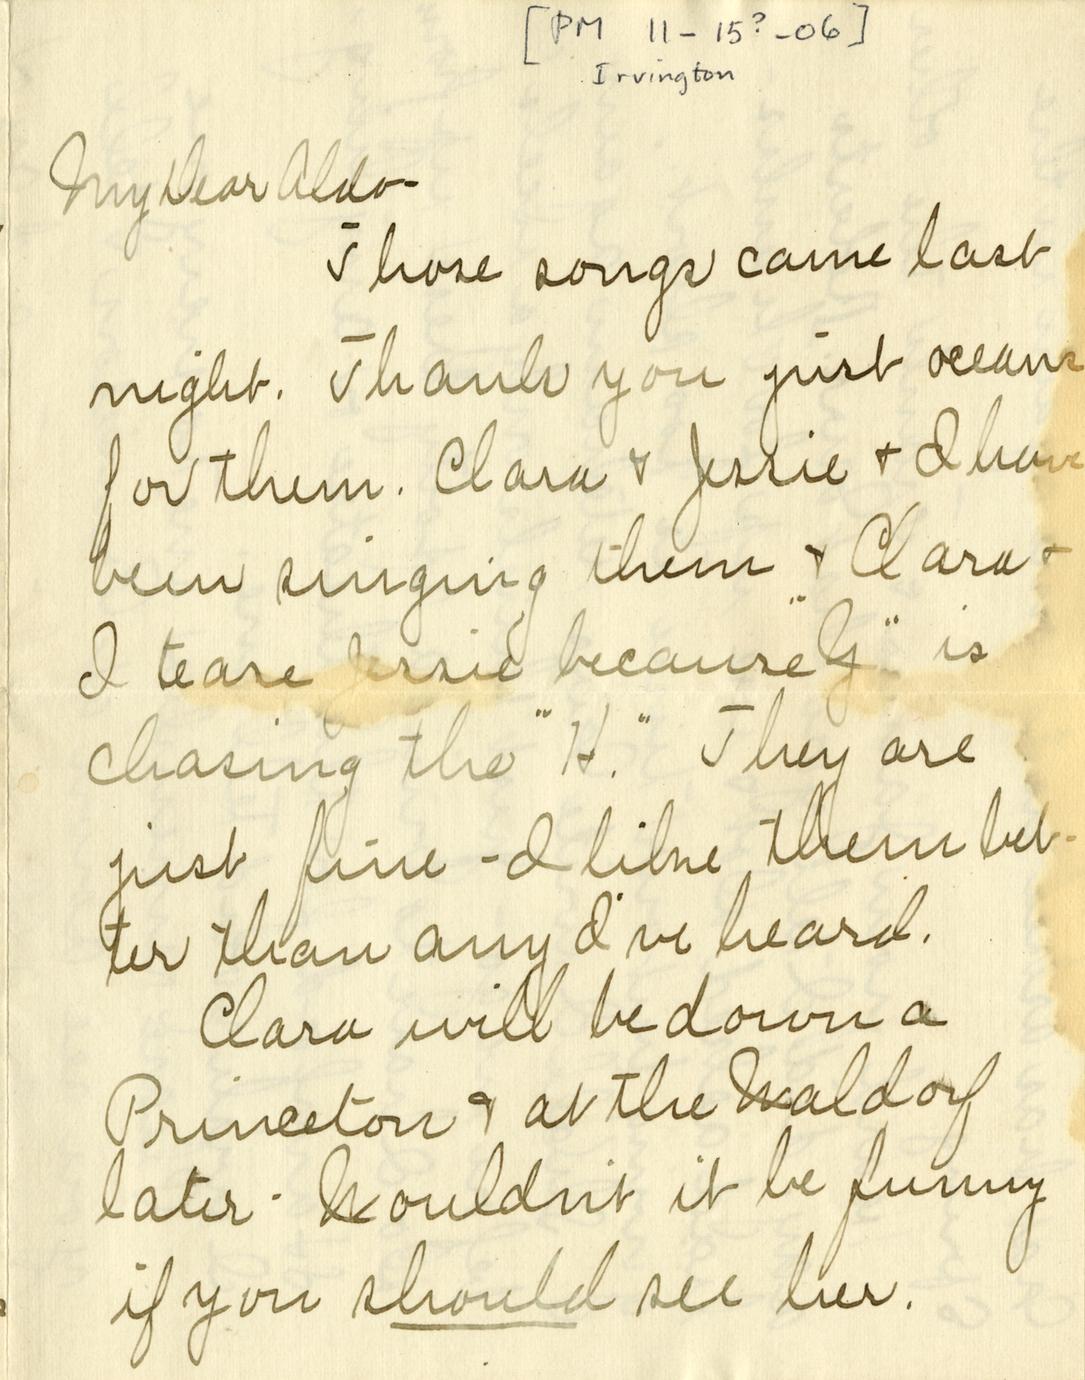 [PM 11-15?-06]
Irvington
My Dear Aldo-
Those songs came last
night. Thank you just oceans
for them. Clara & Jessie + I have
been singing them & Clara +
I tease Jessie because "Y" is
chasing the "H." They are
just fine - I like them bet-
ter than any I've heard.
Clara will be down a
Princeton & at the Waldorf
later - Wouldn't it be funny
if you should see her.